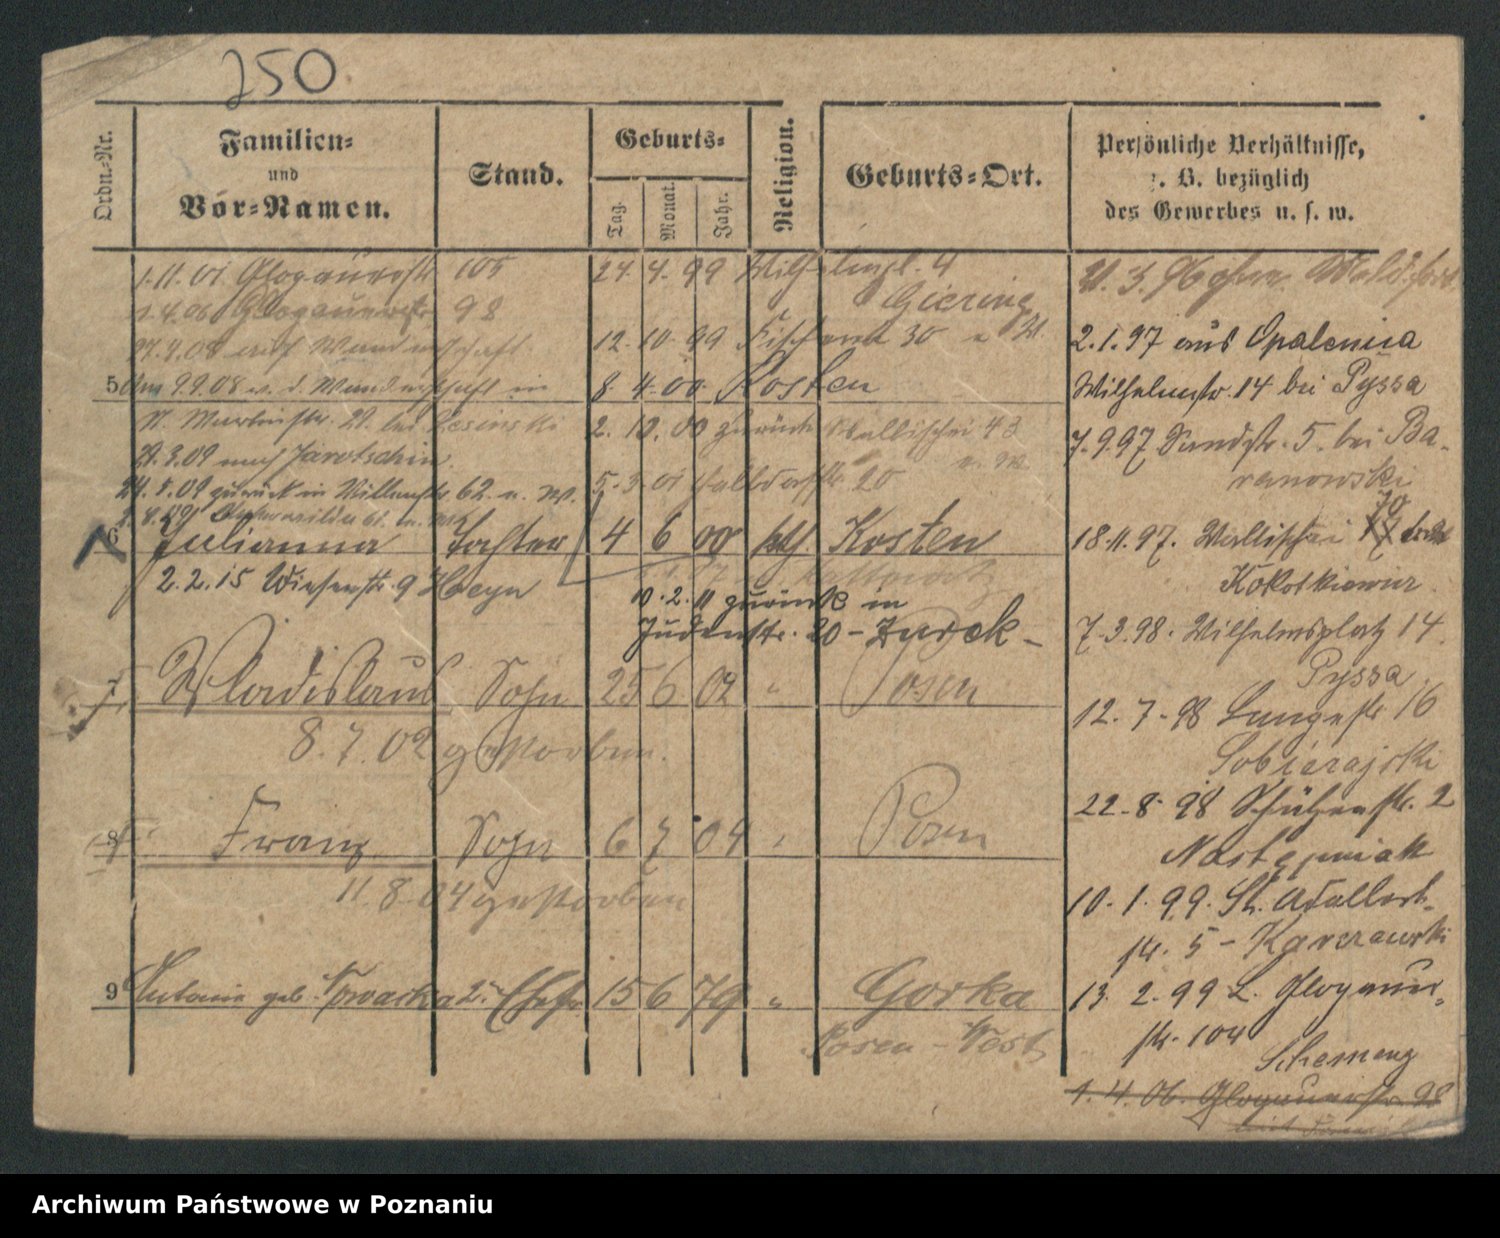 250
Ordn.-Nr.
Familien-
und
Vor-Namen.
Stand.
Geburts-
Tag.
Monat.
Jahr.
Religion.
Geburts-Ort.
Persönliche Verhältnisse,
z. B. bezüglich
des Gewerbes u. s. w.
1.11.01 Glogauerstr 105
1.4.06 Glogauerstr 98
27.4.08 auf Wanderschaft
5 Am 9.9.08 v. d. Wanderschaft in
St. Martinstr. 21. bei Lesinski
21.3.09 nach Jarotschin.
24.5.09 zurück in 62. u. W.
24.4.99 Wilhelmspl. 4
Giering
12.10.99 Fischerei 30
8 4.00. Kosten
2. 10. 00 zurück Wallischei 43
5.3.01 Halbdorfstr. 20
6 Julianna Tochter 4 6 00 kth. Kosten
2.2.15 Wiesenstr. 9 Heyn
10.2.11 zurück in
Judenstr. 20 - Zurek -
7 Wladislaus Sohn 25 6 02 " Posen
8.7.02 gestorben.
8 Franz Sohn 6 7 04 " Posen
11.8.04 gestorben
9 Antonie geb. Nowacka 2. Ehefr. 15 6 79 " Gorka
Posen - West
21.3.96
2.1.97 aus Opalenica
Wilhelmstr. 14 bei Pyssa
7.9.97 Sandstr. 5. bei Ba-
ranowski
70
18.11.97. Wallischei 77
Kokotkiewicz.
7.3.98. Wilhelmsplatz 14.
Pyssa.
12.7.98 Langestr 16
Sobierajski
22.8.98 Schützenstr. 2
Następniak
10.1.99. St. Adalbert-
str. 5 - Kaczrawski
13.2.99 L. Glogauer-
str. 104
Schemeng
1.4.06. Glogauerstr. 98